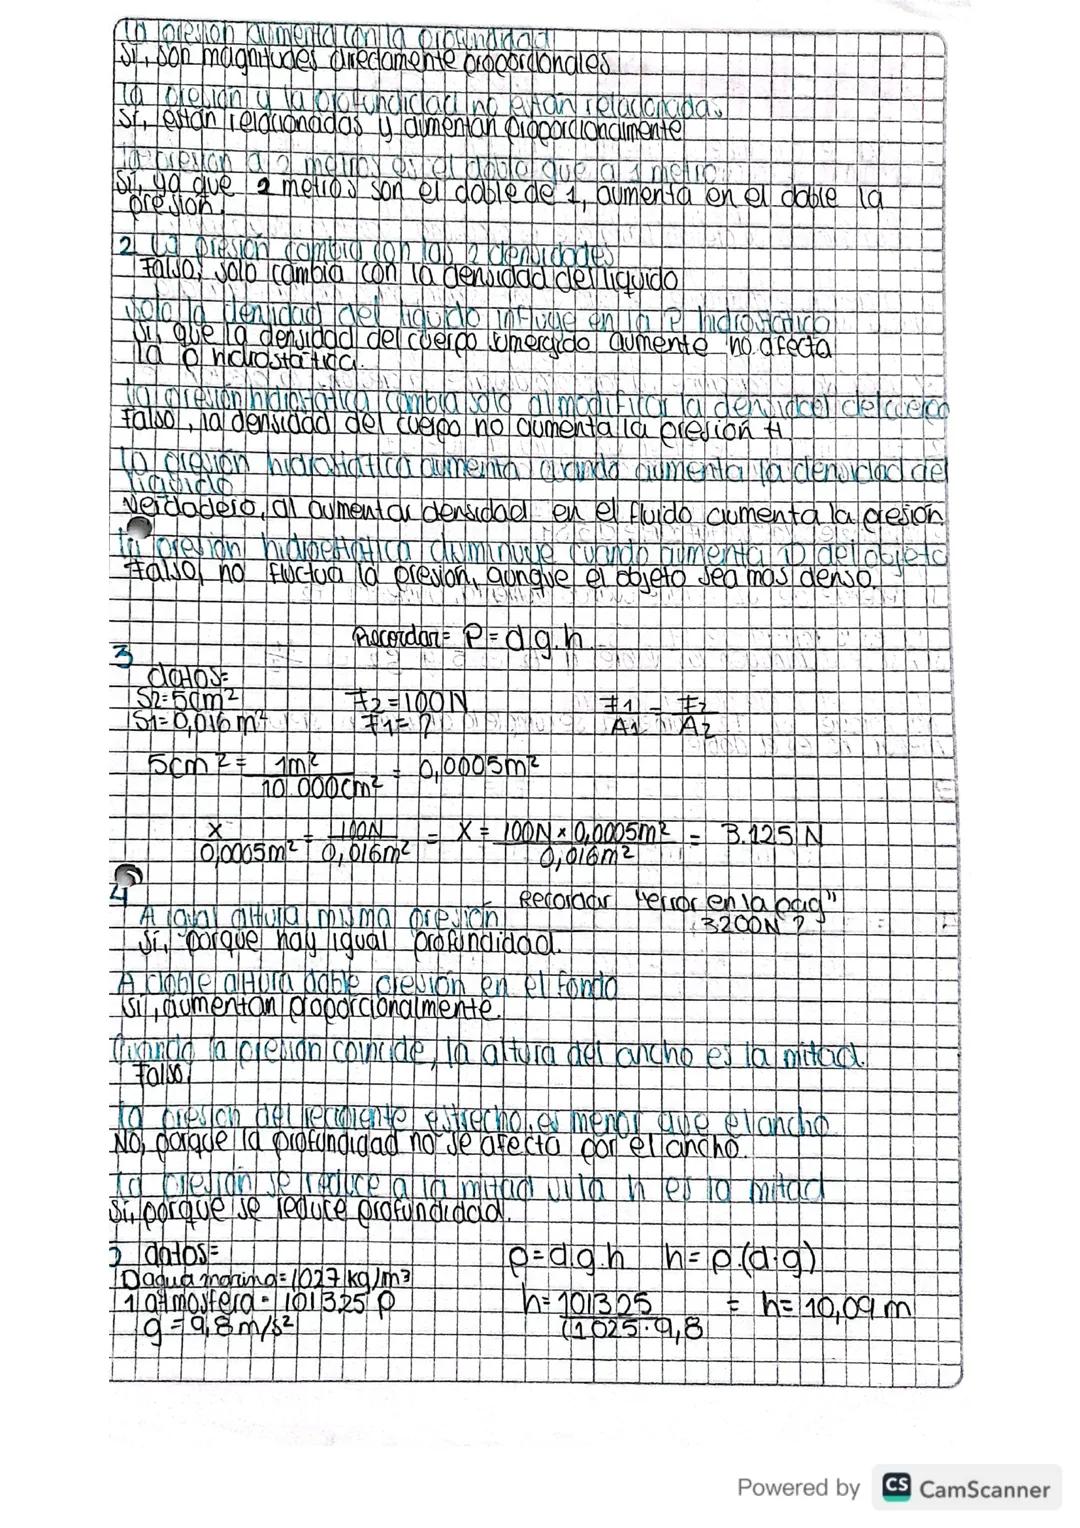 la presión aumenta con la profundidad
Sí, son magnitudes directamente proporcionales
la presión y la profundidad no están relacionadas
Sí, están relacionadas y aumentan proporcionalmente
la presión a 2 metros es el doble que a 1 metro
Sí, ya que 2 metros son el doble de 1, aumenta en el doble la
presión.
2 La presión cambia con las 2 densidades
Falso, solo cambia con la densidad del líquido
solo la densidad del líquido influye en la P hidrostático
Sí, que la densidad del cuerpo sumergido aumente no afecta
la p hidrostática.
la presión hidrostática cambia solo al modificar la densidad del cuerpo
Falso, la densidad del cuerpo no aumenta la presión H.
la presión hidrostática aumenta cuando aumenta la densidad del
líquido
Verdadero, al aumentar densidad en el fluido aumenta la presión
la presión hidrostática disminuye cuando aumenta D del objeto
Falso, no fluctua la presión, aunque el objeto sea mas denso.
Recordar= P=d.g.h
3
datos=
S2=5cm² F2=100N F1/A1 = F2/A2
S1=0,016m² F1=?
5cm²= 1m²/10.000cm² = 0,0005m²
x/0,0005m² = 100N/0,016m² = X= 100N×0,0005m²/0,016m² = 3.125 N
4 Recordar "error en la pág"
A igual altura misma presión 3200N?
Sí, porque hay igual profundidad.
A doble altura doble presión en el fondo
Sí, aumentan proporcionalmente.
Cuando la presión coincide, la altura del ancho es la mitad.
Falso,
la presión del recipiente estrecho, es menor que el ancho
No, porque la profundidad no se afecta por el ancho.
la presión se reduce a la mitad si la h es la mitad
Sí, porque se reduce profundidad.
5 datos= p=d.g.h h=p.(d.g)
D agua marina=1027 kg/m³
1 atmosfera= 101325 P h=101325/(1025.9,8 = h=10,09 m
g=9,8m/s²
Powered by CS CamScanner